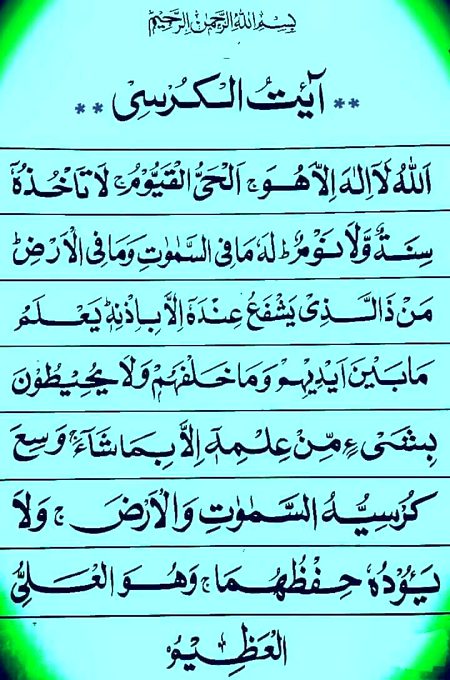 بِسْمِ اللهِ الرَّحْمٰنِ الرَّحِيْمِ
** آيَتُ الْكُرْسِى **
اَللهُ لَاۤ اِلٰهَ اِلَّا هُوَ ۚ اَلْحَىُّ الْقَيُّوْمُ ۚ لَا تَاْخُذُهٗ
سِنَةٌ وَّلَا نَوْمٌ ؕ لَهٗ مَا فِى السَّمٰوٰتِ وَمَا فِى الْاَرْضِ ؕ
مَنْ ذَا الَّذِىْ يَشْفَعُ عِنْدَهٗۤ اِلَّا بِاِذْنِهٖ ؕ يَعْلَمُ
مَا بَيْنَ اَيْدِيْهِمْ وَمَا خَلْفَهُمْ ۚ وَلَا يُحِيْطُوْنَ
بِشَىْءٍ مِّنْ عِلْمِهٖۤ اِلَّا بِمَا شَآءَ ۚ وَسِعَ
كُرْسِيُّهُ السَّمٰوٰتِ وَالْاَرْضَ ۚ وَلَا
يَـُٔوْدُهٗ حِفْظُهُمَا ۚ وَهُوَ الْعَلِىُّ
الْعَظِيْمُ